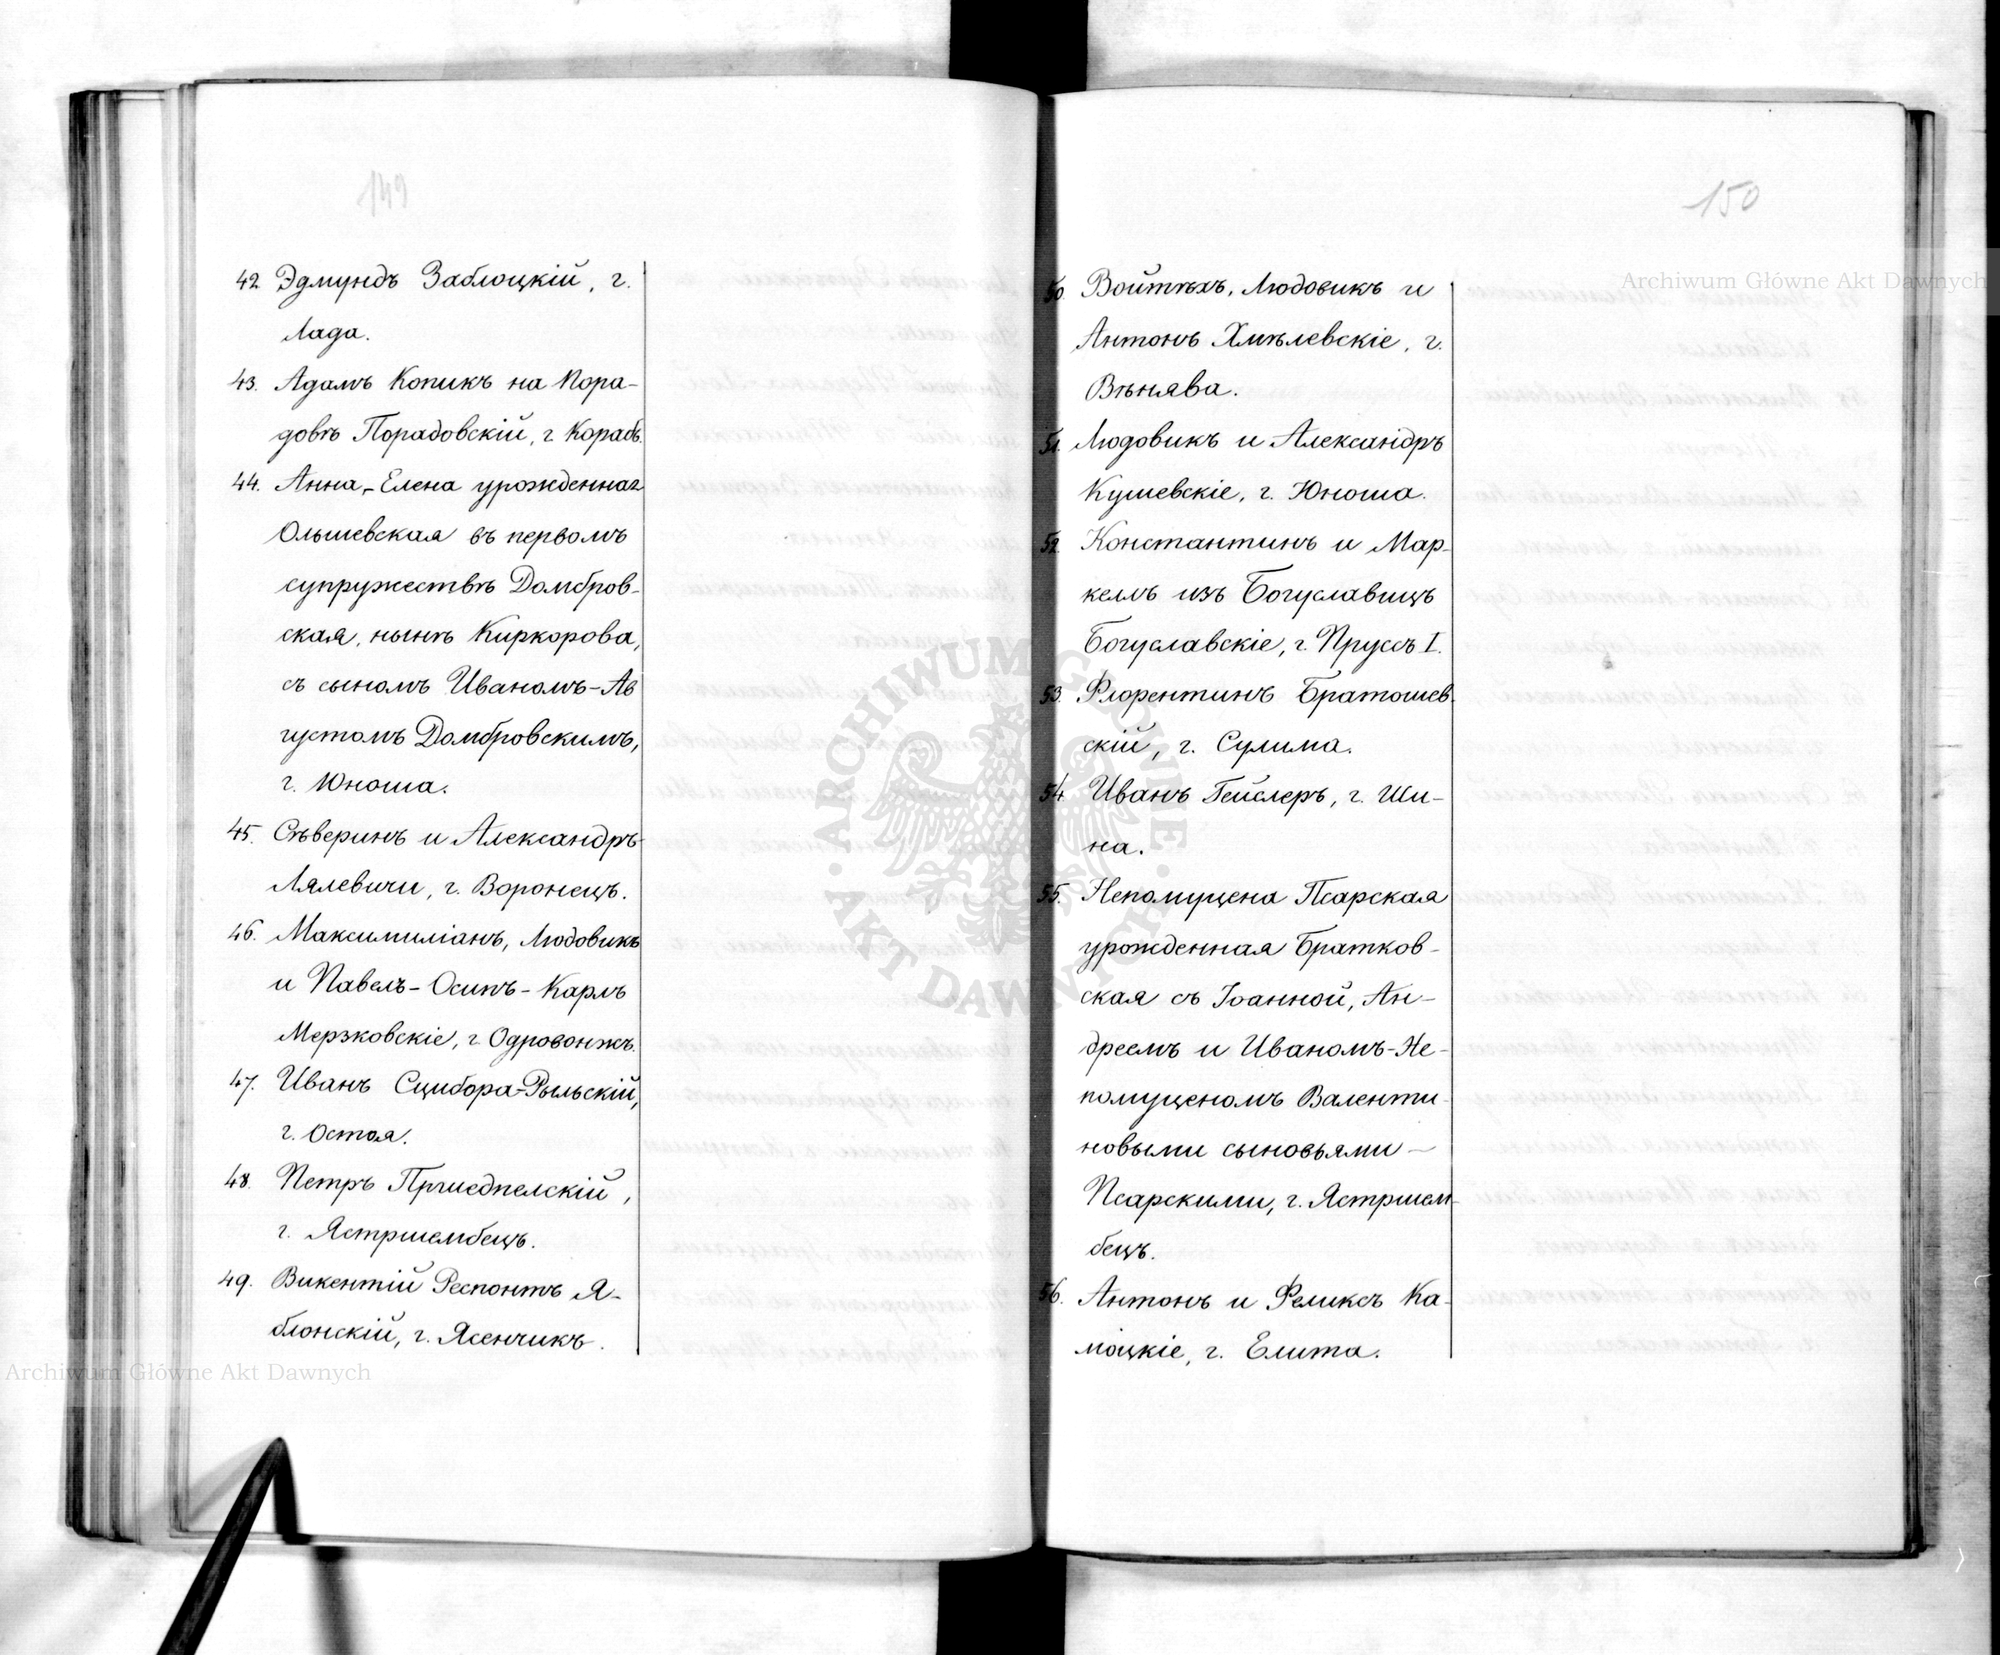 149
42. Эдмундъ Заблоцкій, г.
Лада.
43. Адамъ Копикъ на Пора-
довѣ Порадовскій, г. Корабъ.
44. Анна-Елена урожденная
Ольшевская въ первомъ
супружествѣ Домбров-
ская, нынѣ Киркорова,
съ сыномъ Иваномъ-Ав
густомъ Домбровскимъ,
г. Юноша.
45. Сѣверинъ и Александръ
Лялевичи, г. Воронецъ.
46. Максимиліанъ, Людовикъ
и Павелъ-Осипъ-Карлъ
Мерзковскіе, г. Одровонжъ.
47. Иванъ Сцибора-Рыльскій,
г. Остоя.
48. Петръ Пршедпелскій,
г. Ястршембецъ.
49. Викентій Респонтъ Я-
блонскій, г. Ясенчикъ.
150
50. Войтѣхъ, Людовикъ и
Антонъ Хмѣлевскіе, г.
Вѣнява.
51. Людовикъ и Александръ
Кушевскіе, г. Юноша.
52. Константинъ и Мар-
келъ изъ Богуславицъ
Богуславскіе, г. Пруссъ I.
53. Флорентинъ Братошев-
скій, г. Сулима.
54. Иванъ Гейслеръ, г. Ши-
на.
55. Непомуцена Псарская
урожденная Братков-
ская съ Іоанной, Ан-
дреемъ и Иваномъ-Не-
помуценомъ Валенти-
новыми сыновьями
Псарскими, г. Ястршем-
бецъ.
56. Антонъ и Феликсъ Ка-
моцкіе, г. Елита.
Archiwum Główne Akt Dawnych
Archiwum Główne Akt Dawnych
ARCHIWUM GŁÓWNE · AKT DAWNYCH ·